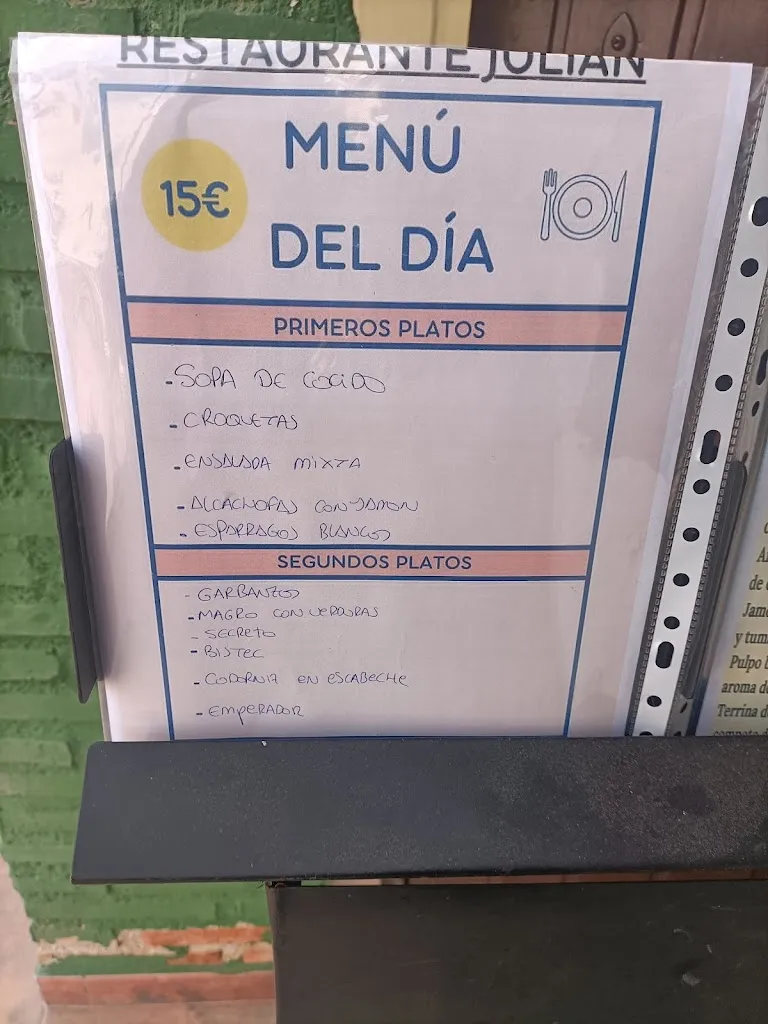 RESTAURANTE JULIAN
MENÚ
15€
DEL DÍA
PRIMEROS PLATOS
- SOPA DE COCIDO
- CROQUETAS
- ENSALADA MIXTA
- ALCACHOFAS CON JAMON
- ESPARRAGOS BLANCOS
SEGUNDOS PLATOS
- GARBANZOS
- MAGRO CON VERDURAS
- SECRETO
- BISTEC
- CODORNIZ EN ESCABECHE
- EMPERADOR
de
Jam
y tum
Pulpo
aroma d
Terrina d